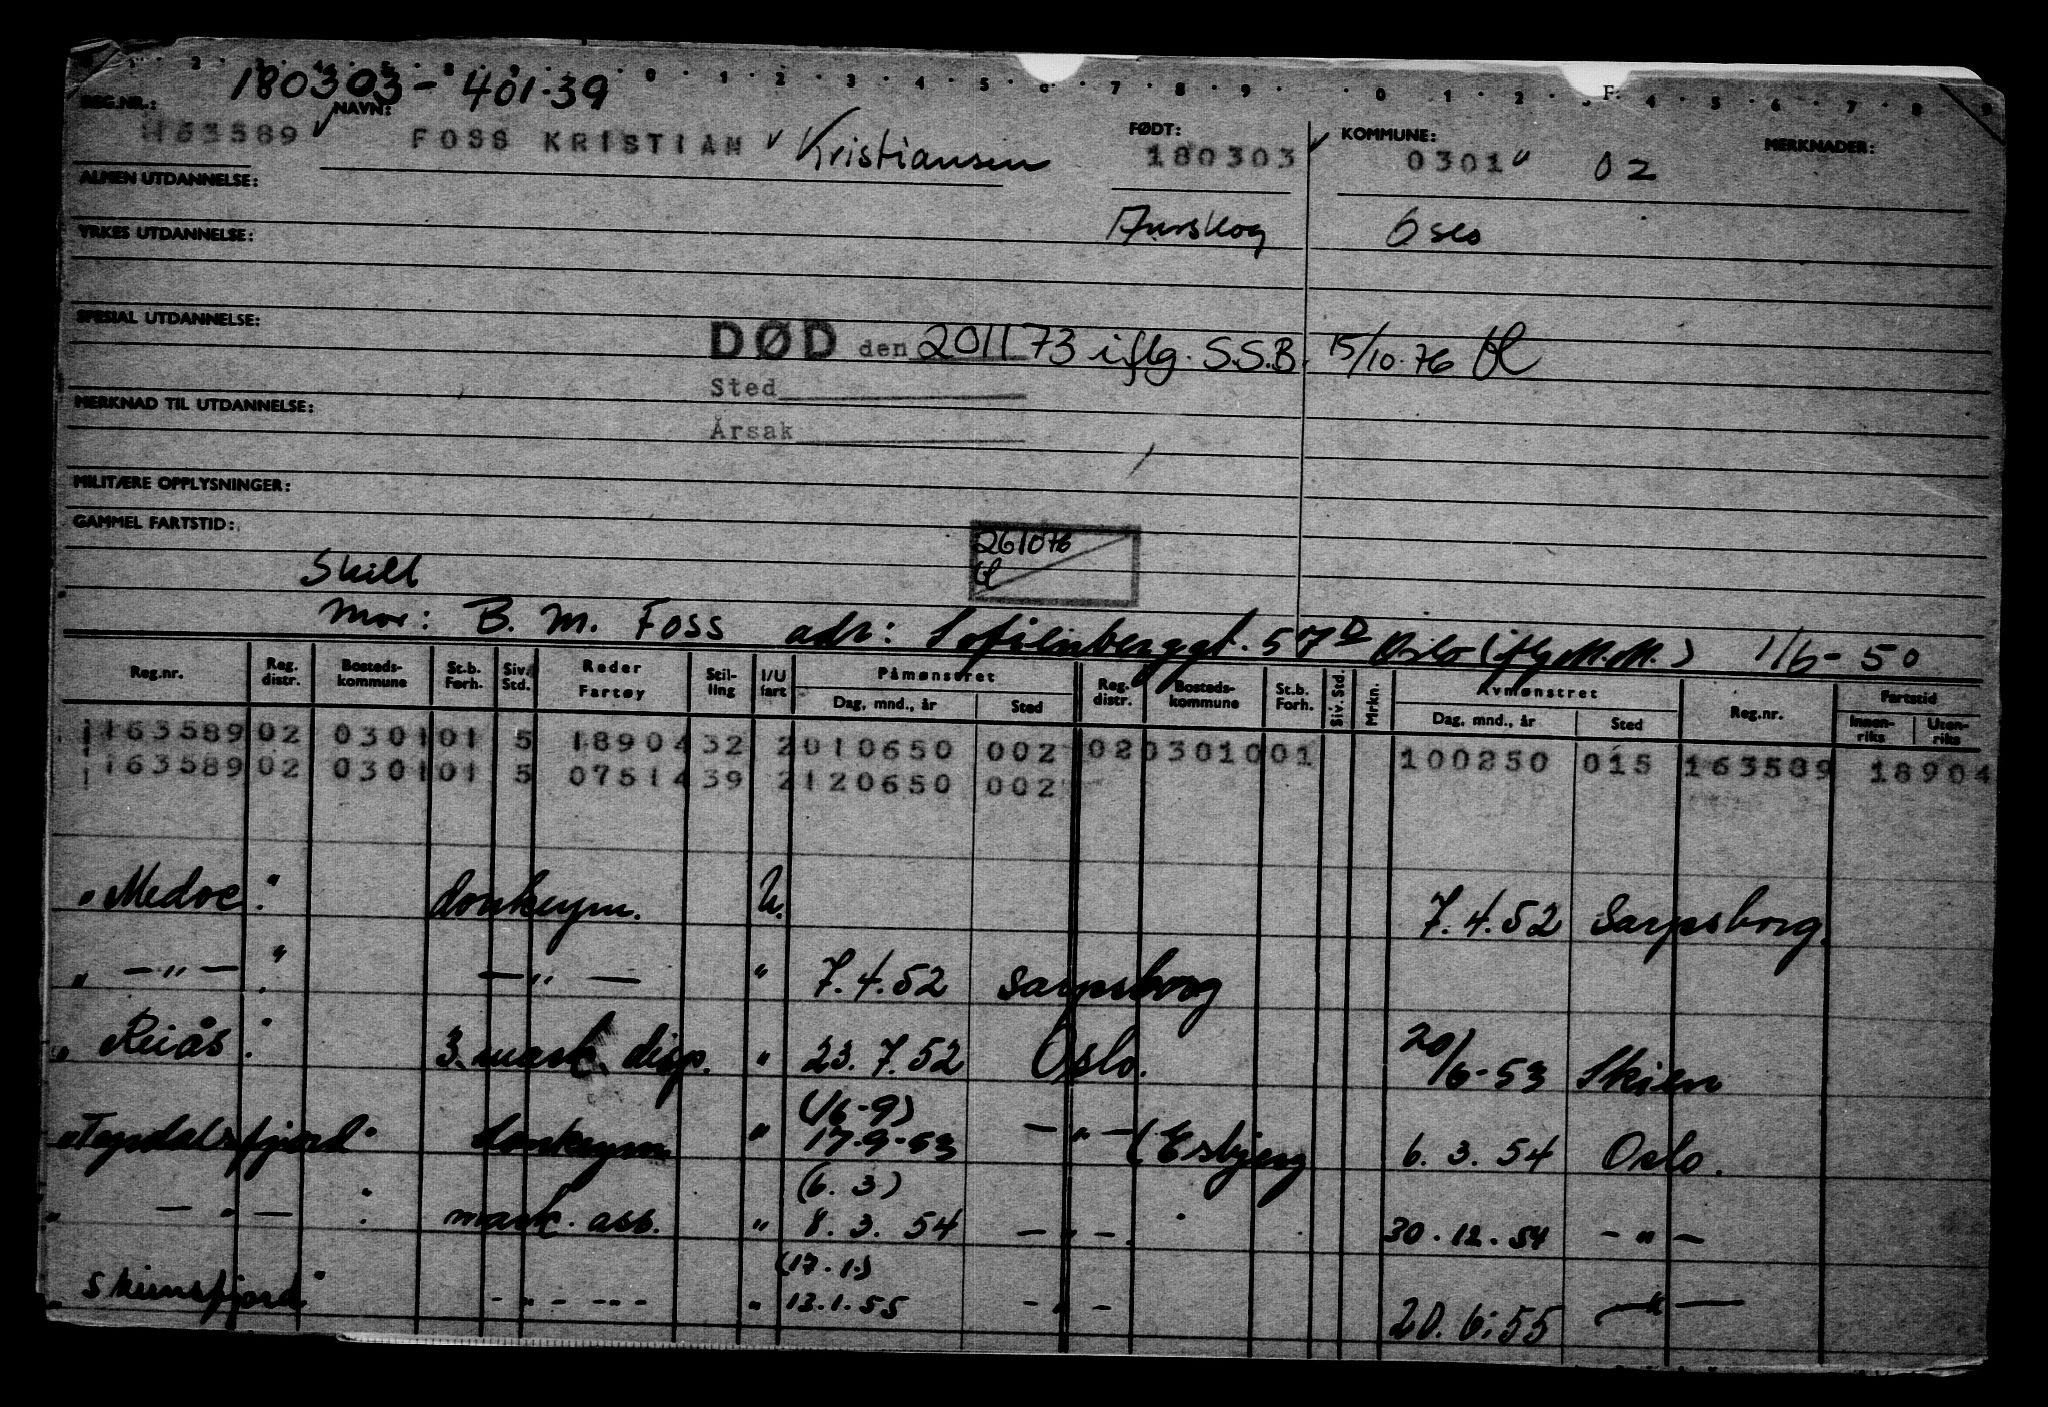 180303 - 401.39
REG.NR.: NAVN: FØDT: KOMMUNE: MERKNADER:
163589 FOSS KRISTIAN Kristiansen 180303 0301 02
ALMEN UTDANNELSE:
Aurskog Oslo
YRKES UTDANNELSE:
SPESIAL UTDANNELSE:
DØD den 201173 iflg. S.S.B. 15/10.76
Sted
MERKNAD TIL UTDANNELSE:
Årsak
MILITÆRE OPPLYSNINGER:
GAMMEL FARTSTID:
261076
Skilt
Mor: B. M. Foss adr: Sofienberggt. 57D Oslo (iflg M.M.) 1/6-50
Reg.nr. Reg. distr. Bosteds-kommune St.b. Forh. Siv. Std. Reder Fartøy Stil-ling I/U fart Påmønstret Reg. distr. Bosteds-kommune St.b. Forh. Siv. Std. Mrkn. Avmønstret Reg.nr. Fartstid
Dag, mnd., år Sted Dag, mnd., år Sted Innen-riks Uten-riks
163589 02 0301 01 5 18904 32 2 010650 002 02 0301 001 100850 015 163589 18904
163589 02 0301 01 5 07514 39 2 120650 002
"Medoc" donkeym. U. 7.4.52 Sarpsborg.
" — " — " — " — " 7.4.52 Sarpsborg
"Reiås" 3. mask. disp. " 23.7.52 Oslo. 20/6-53 Skien
(16-9)
"Tyssdalsfjord" donkeym " 17-9-53 — " — (Esbjerg 6.3.54 Oslo.
(6.3)
" — " — " mask. ass. " 8.3.54 — " — 30.12.54 — " —
(17.1.)
"Skiensfjord" - " - --- " 13.1.55 — " — 20.6.55 — " —